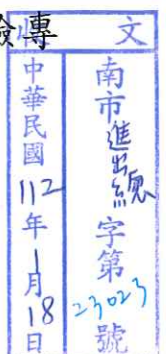 專
文
南市進出總字第23023號
中華民國112年1月18日